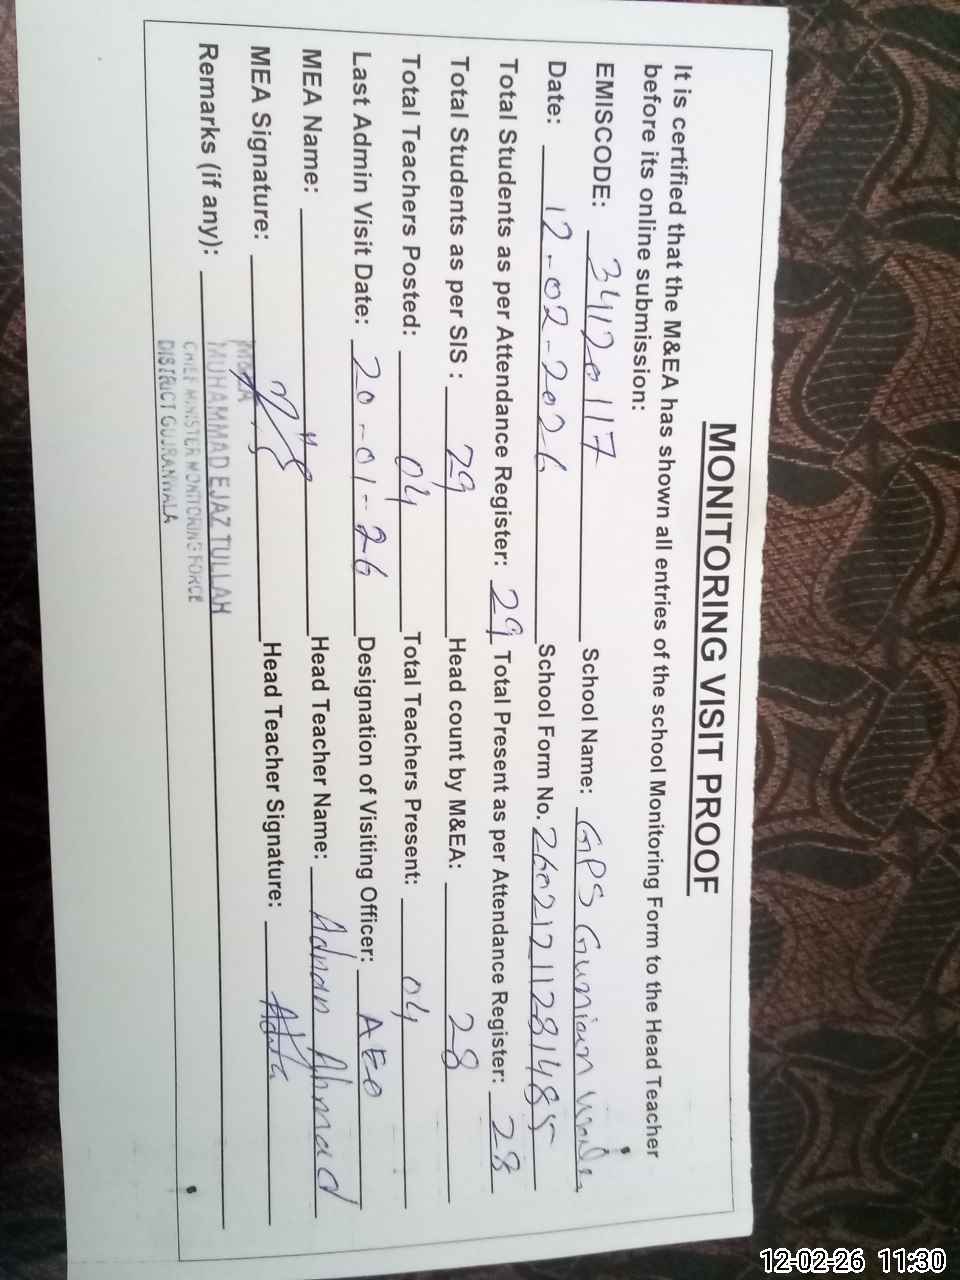 MONITORING VISIT PROOF
It is certified that the M&EA has shown all entries of the school Monitoring Form to the Head Teacher
before its online submission:
EMISCODE: 34120117 School Name: GPS Gunian
Date: 12-02-2026 School Form No. 26021211281485
Total Students as per Attendance Register: 29 Total Present as per Attendance Register: 28
Total Students as per SIS : 29 Head count by M&EA: 28
Total Teachers Posted: 04 Total Teachers Present: 04
Last Admin Visit Date: 20-01-26 Designation of Visiting Officer: AEO
MEA Name: Head Teacher Name: Adnan Ahmad
MEA Signature: Head Teacher Signature:
Remarks (if any):
MUHAMMAD EJAZ TULLAH
CHIEF MINISTER MONITORING FORCE
DISTRICT GUJRANWALA
12-02-26 11:30